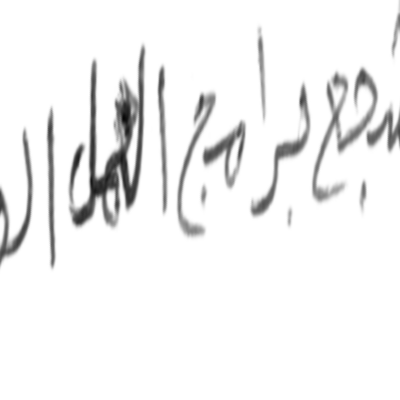 شجع برامج العمل